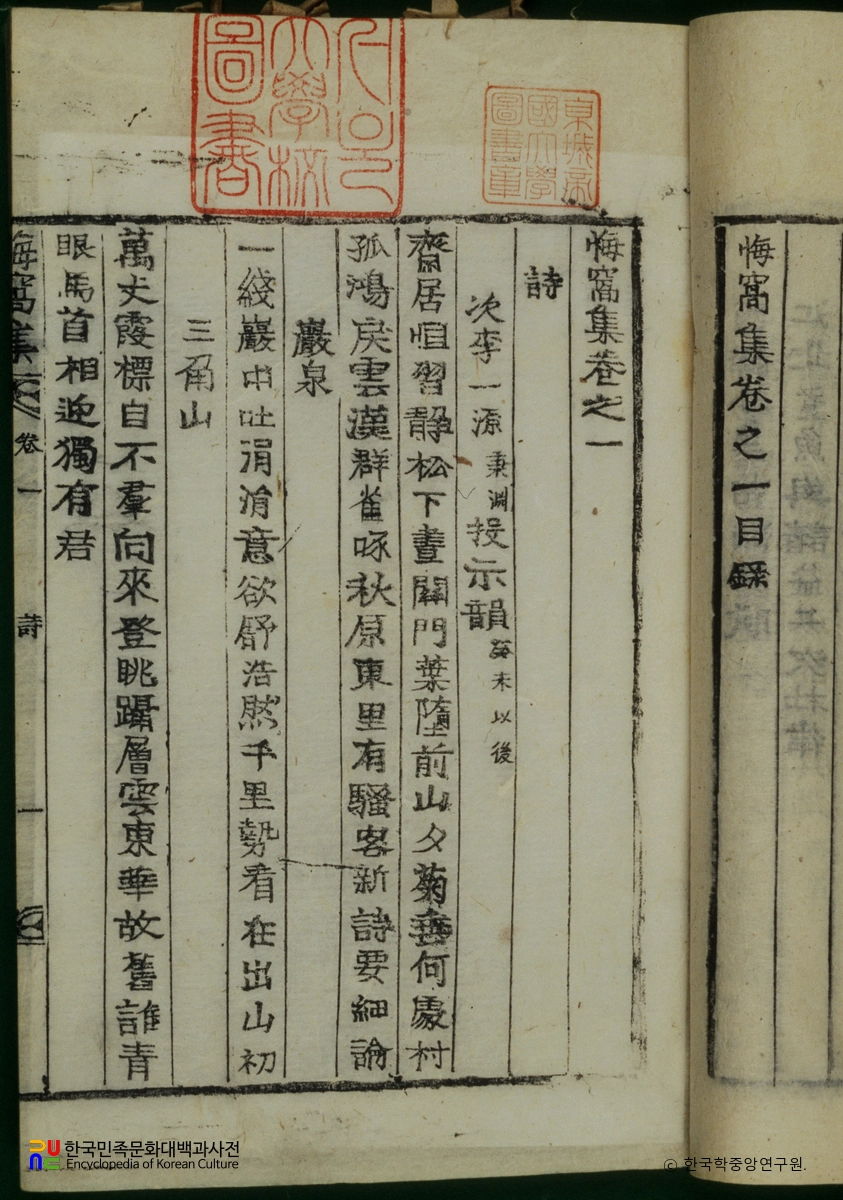 悔窩集卷之一目錄
京城帝
國大學
圖書章
서울
大學校
圖書
悔窩集卷之一
詩
次李一源秉淵投示韻癸未以後
齋居恒習静松下晝關門葉墮前山夕菊垂何處村
孤鴻戾雲漢群雀啄秋原東里有騷客新詩要細論
巖泉
一綫巖中吐涓涓意欲舒浩然千里勢看在出山初
三角山
萬丈霞標自不羣向來登眺躡層雲東華故舊誰青
眼馬首相迎獨有君
悔窩集 卷一 詩 一
한국민족문화대백과사전
Encyclopedia of Korean Culture
© 한국학중앙연구원.